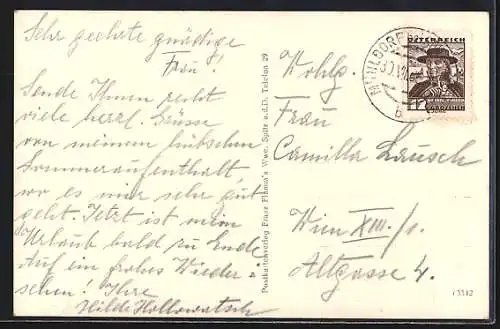 Sehr geehrte gnädige
Frau!
Sende Ihnen recht
viele herzl. Grüsse
von meinem hübschen
Sommeraufenthalt,
wo es mir sehr gut
geht. Jetzt ist mein
Urlaub bald zu Ende
Auf ein frohes Wieder-
sehen! Ihre
Hilde Hollowatsch
Postkartenverlag Franz Flamm's Wwe., Spitz a.d.D. Telefon 29
ÖSTERREICH
12
MÜHLDORF
b
Wohlg.
Frau
Camilla Lausch
Wien XIII/1.
Altgasse 4.
13342